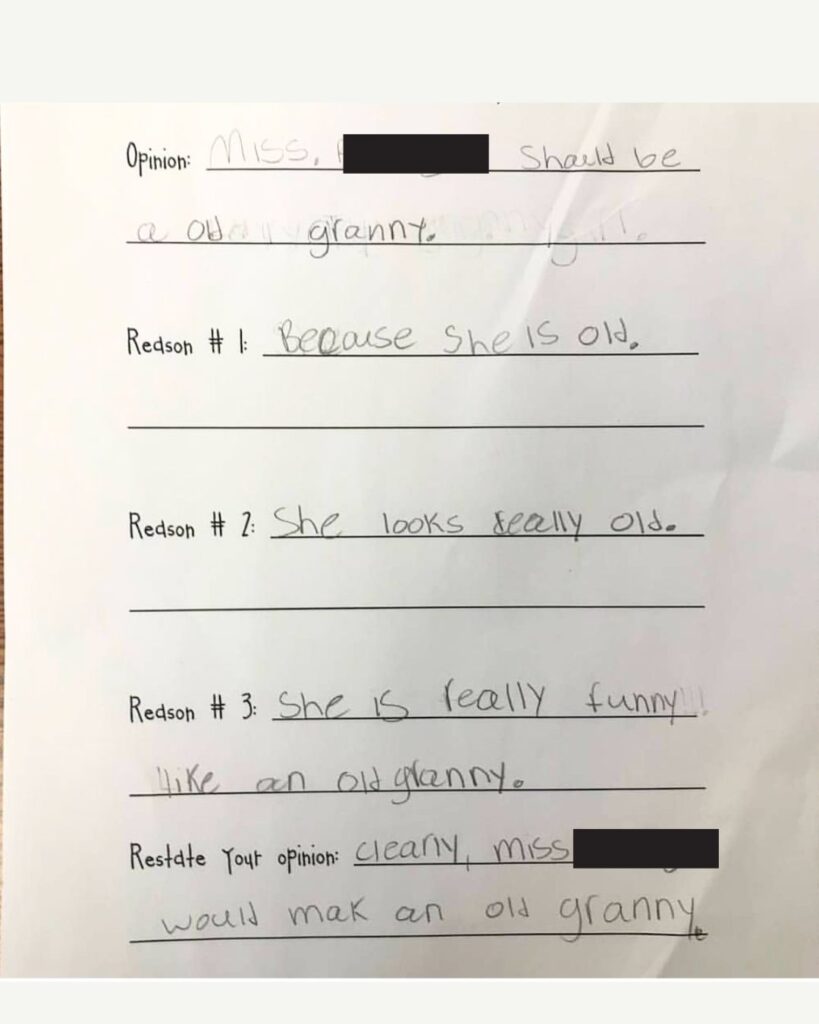 Opinion: Miss. Should be
a old granny.
Reason # 1: Because She is old.
Reason # 2: She looks really old.
Reason # 3: She is really funny!!!
like an old granny.
Restate Your opinion: clearly, miss
would mak an old granny.